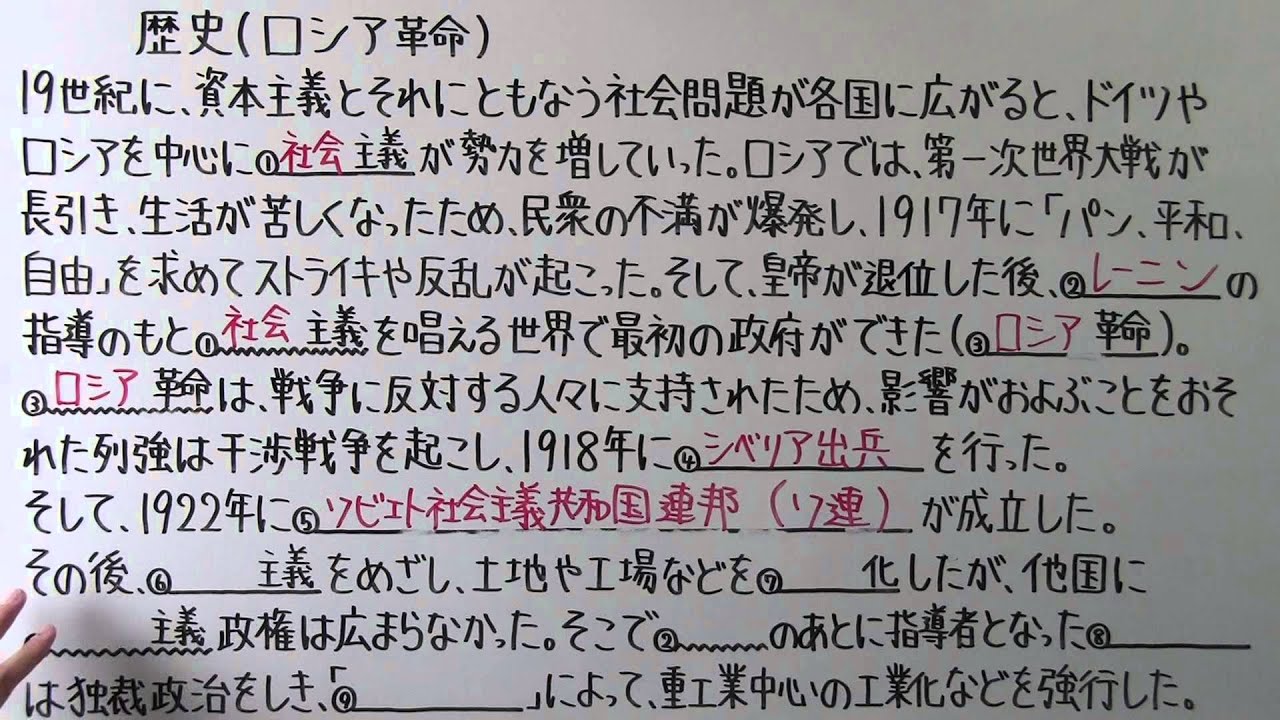 歴史(ロシア革命)
19世紀に、資本主義とそれにともなう社会問題が各国に広がると、ドイツや
ロシアを中心に①社会主義が勢力を増していった。ロシアでは、第一次世界大戦が
長引き、生活が苦しくなったため、民衆の不満が爆発し、1917年に「パン、平和、
自由」を求めてストライキや反乱が起こった。そして、皇帝が退位した後、②レーニンの
指導のもと①社会主義を唱える世界で最初の政府ができた(③ロシア革命)。
③ロシア革命は、戦争に反対する人々に支持されたため、影響がおよぶことをおそ
れた列強は干渉戦争を起こし、1918年に④シベリア出兵を行った。
そして、1922年に⑤ソビエト社会主義共和国連邦(ソ連)が成立した。
その後、⑥　　主義をめざし、土地や工場などを⑦　　化したが、他国に
　　主義政権は広まらなかった。そこで②　　のあとに指導者となった⑧
は独裁政治をしき、「⑨　　」によって、重工業中心の工業化などを強行した。